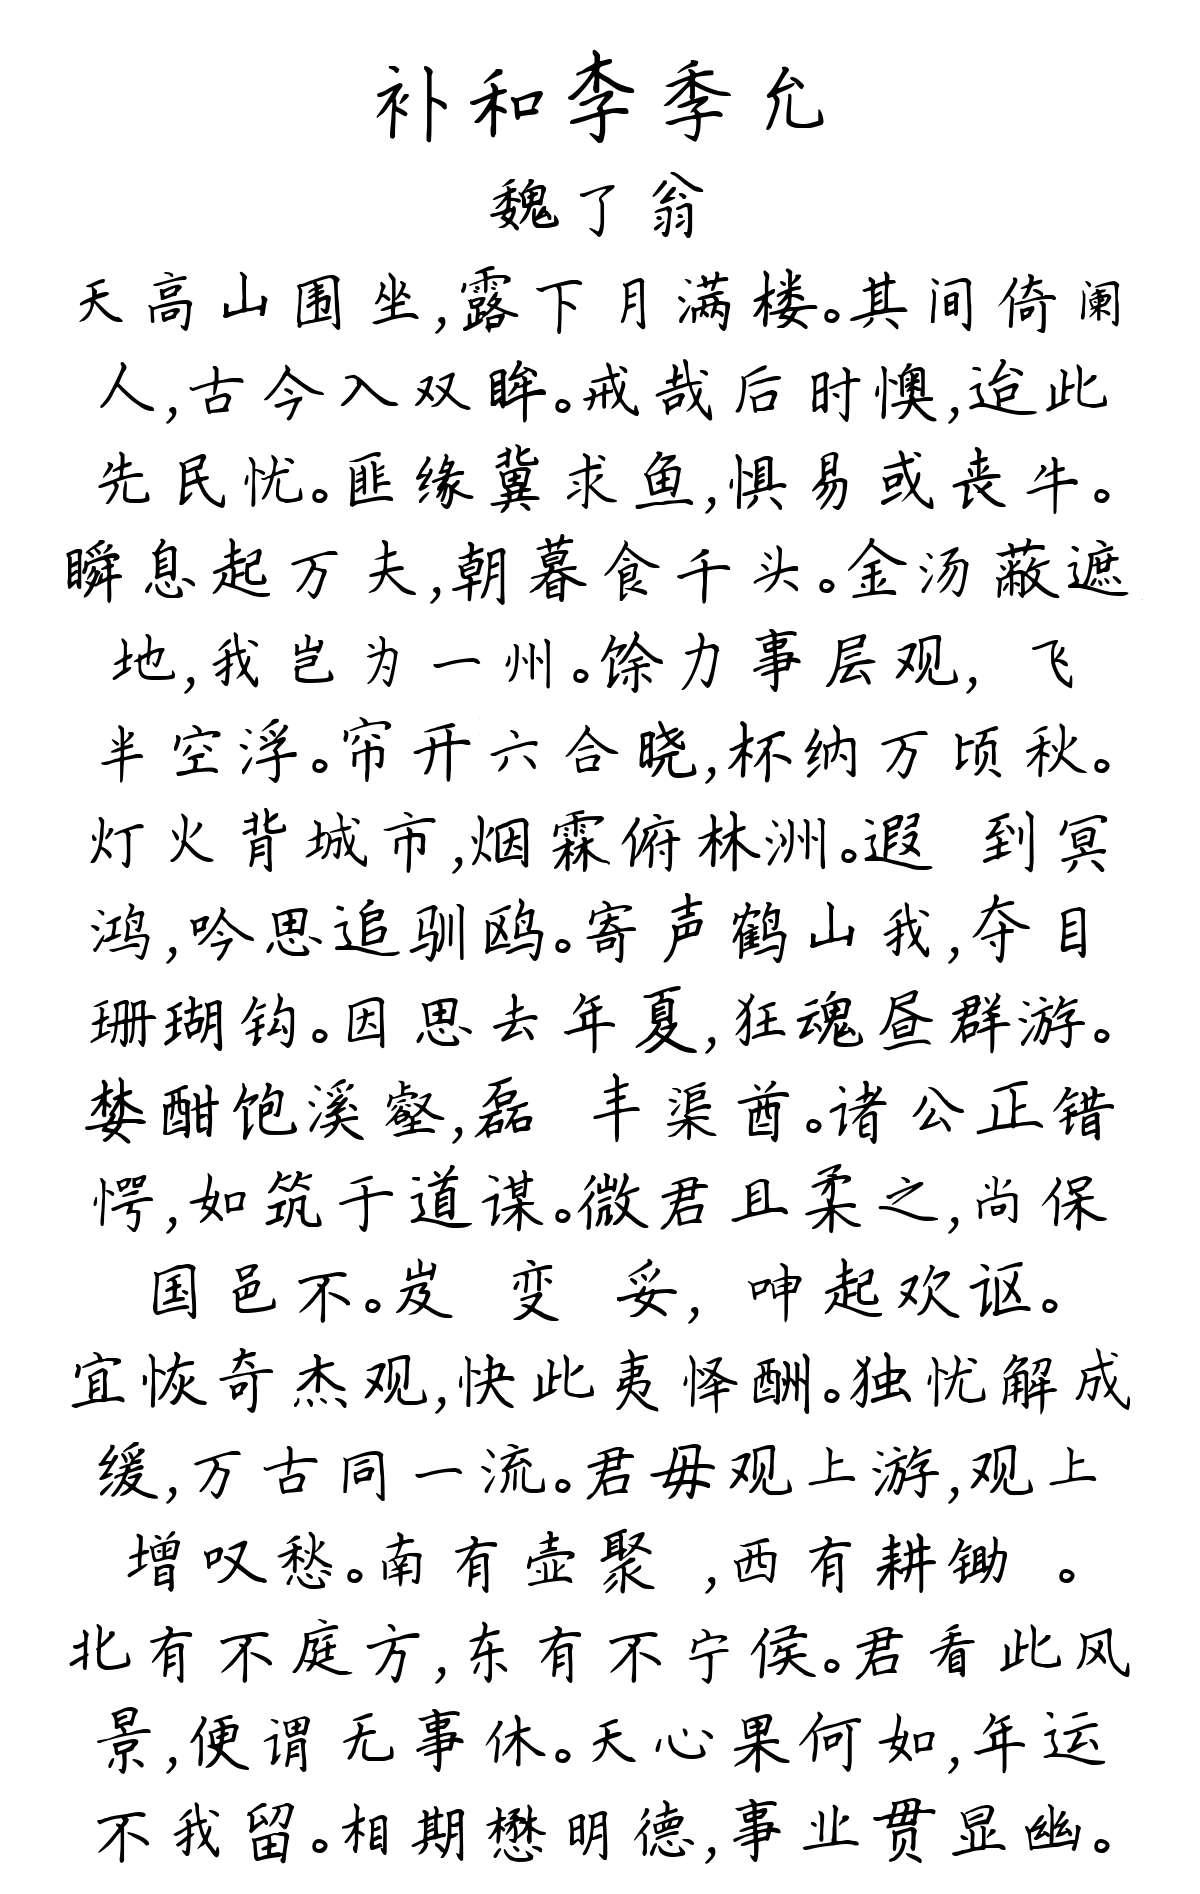 补和李季允
魏了翁
天高山围坐,露下月满楼。其间倚阑
人,古今入双眸。戒哉后时懊,迨此
先民忧。匪缘冀求鱼,惧易或丧牛。
瞬息起万夫,朝暮食千头。金汤蔽遮
地,我岂为一州。馀力事层观, 飞
半空浮。帘开六合晓,杯纳万顷秋。
灯火背城市,烟霖俯林洲。遐 到冥
鸿,吟思追驯鸥。寄声鹤山我,夺目
珊瑚钩。因思去年夏,狂魂昼群游。
婪酣饱溪壑,磊 丰渠酋。诸公正错
愕,如筑于道谋。微君且柔之,尚保
国邑不。岌 变 妥, 呻起欢讴。
宜恢奇杰观,快此夷怿酬。独忧解成
缓,万古同一流。君毋观上游,观上
增叹愁。南有壶聚 ,西有耕锄 。
北有不庭方,东有不宁侯。君看此风
景,便谓无事休。天心果何如,年运
不我留。相期懋明德,事业贯显幽。